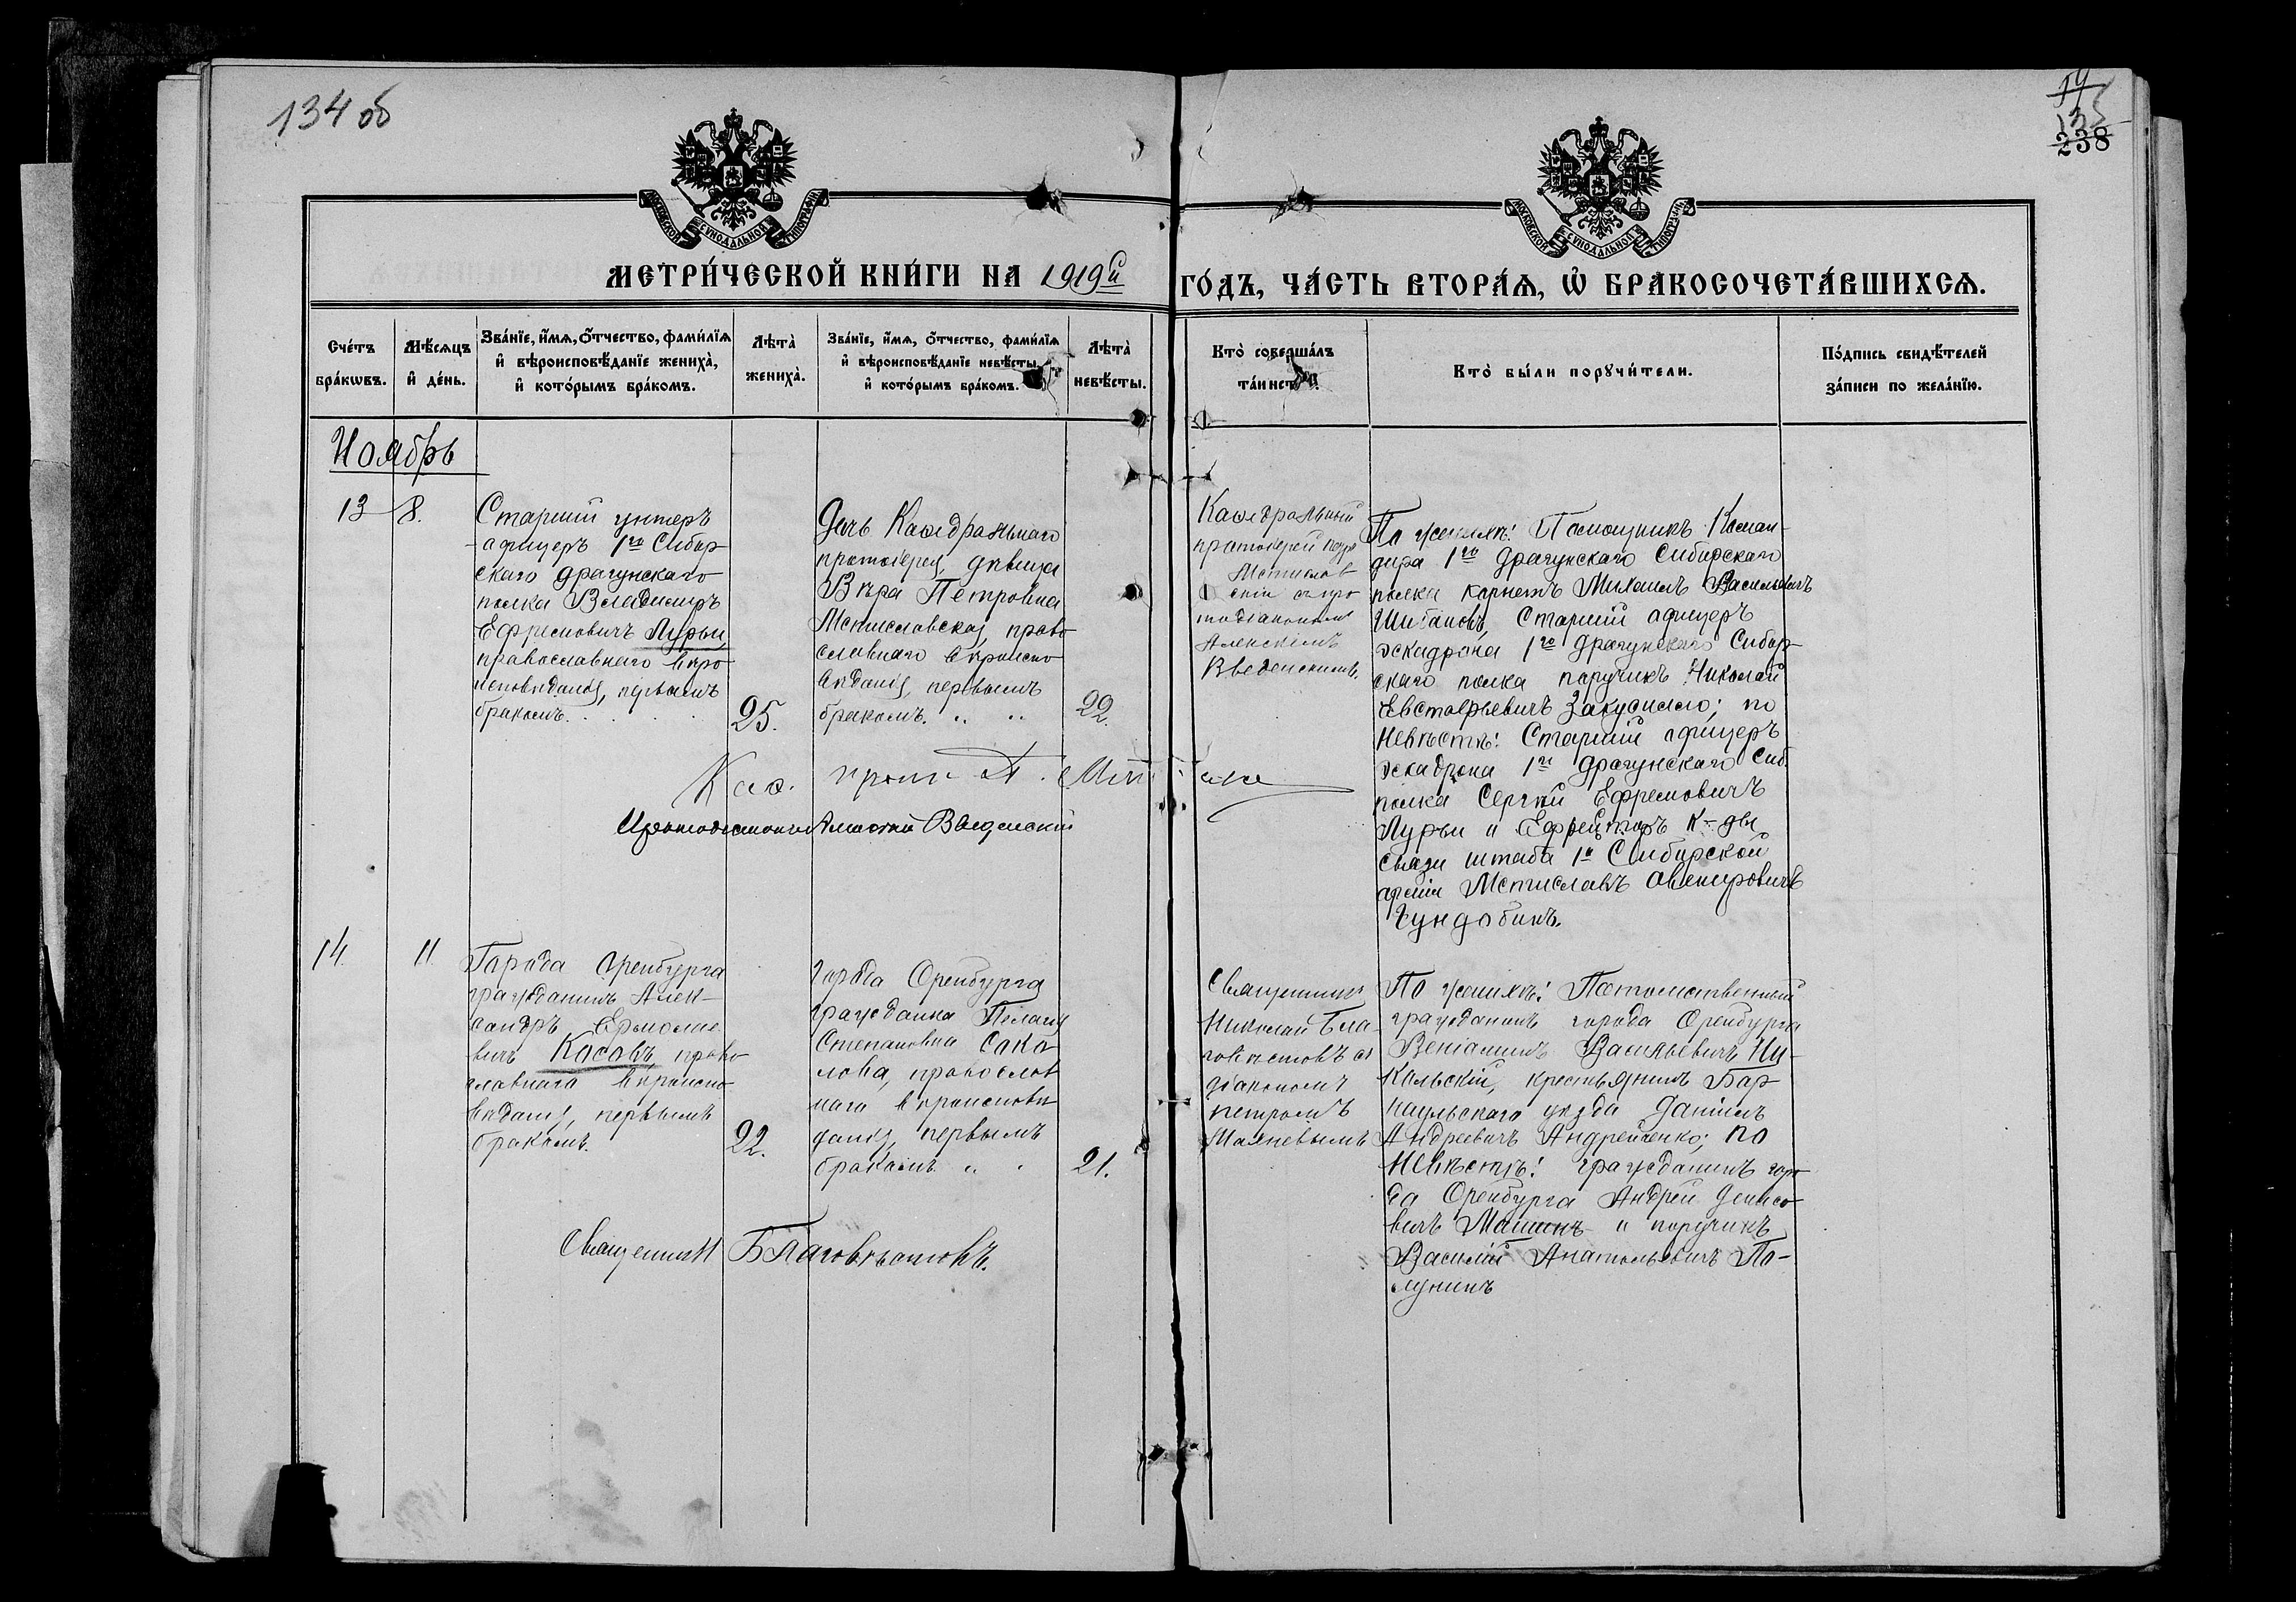 134 об
238
МОСКОВСКОЙ СѴНОДАЛЬНОЙ ТИПОГРАФІИ
МОСКОВСКОЙ СѴНОДАЛЬНОЙ ТИПОГРАФІИ
МЕТРИ́ЧЕСКОЙ КНИ́ГИ НА 1919й
ГО́ДЪ, ЧА́СТЬ ВТОРА́Ѧ, Ѽ БРАКОСОЧЕТА́ВШИХСѦ.
Сче́тъ
бра́кѡвъ.
Мѣ́сѧцъ
и҆ де́нь.
Зва́нїе, и҆́мѧ, ѻ҆́тчество, фами́лїѧ
и҆ вѣроисповѣ́данїе жениха̀,
и҆ кото́рымъ бра́комъ.
Лѣта̀
жениха̀.
Зва́нїе, и҆́мѧ, ѻ҆́тчество, фами́лїѧ
и҆ вѣроисповѣ́данїе невѣ́сты,
и҆ кото́рымъ бра́комъ.
Лѣта̀
невѣ́сты.
Кто̀ соверша́лъ
та́инст
Кто̀ бы́ли порꙋчи́тели.
По́дпись свидѣ́телей
за́писи по жела́нїю.
Ноябрь
13
8.
Старшій унтеръ
-офицеръ 1го Сибир-
скаго драгунскаго
полка Владимиръ
Ефремовичъ Лурьи,
православнаго веро
исповѣданія, первымъ
бракомъ.
25.
Дочь Каѳедральнаго
протоіерея, дѣвица
Вѣра Петровна
Мстиславская, право
славнаго вѣроиспо
вѣданія, первымъ
бракомъ. „ „
22.
Каѳедральный
протоіерей Петръ
Мстислав
скій съ про
тодіакономъ
Алексѣемъ
Введенскимъ.
По женихѣ: Помощникъ Коман-
дира 1го драгунскаго Сибирскаго
полка корнетъ Михаилъ Васильевичъ
Шибановъ, Старшій офицеръ
эскадрона 1го драгунскаго Сибир-
скаго полка поручикъ Николай
Евстафьевичъ Закусилло; по
Невѣстѣ: Старшій офицеръ
эскадрона 1го драгунскаго Сиб.
полка Сергѣй Ефремовичъ
Лурьи и Ефрейторъ к-ды
связи штаба 1й Сибирской
арміи Мстиславъ Авенировичъ
Гундобинъ.
Каѳ. прот. П. Мст
Протодіаконъ Алексѣй Введенскій
14.
11.
Города Оренбурга
гражданинъ Алек-
сандръ Ермолае
вичъ Косовъ, право
славнаго вѣроиспо
вѣданія, первымъ
бракомъ.
22.
Города Оренбурга
гражданка Пелагія
Степановна Соко
лова, православ
наго вѣроисповѣ
данія, первымъ
бракомъ „
21.
Священникъ
Николай Бла-
говѣстовъ съ
діакономъ
Петромъ
По женихѣ: Потомственный
гражданинъ города Оренбурга
Веніаминъ Васильевичъ Ни-
кольскій, крестьянинъ Бар-
наульскаго уѣзда Даніилъ
Андреевичъ Андрейченко; по
Невѣстѣ: гражданинъ горо
да Оренбурга Андрей Денисо-
вичъ Машинъ и поручикъ
Василій Анатольевичъ По-
лунинъ
Священникъ Благовѣстовъ.